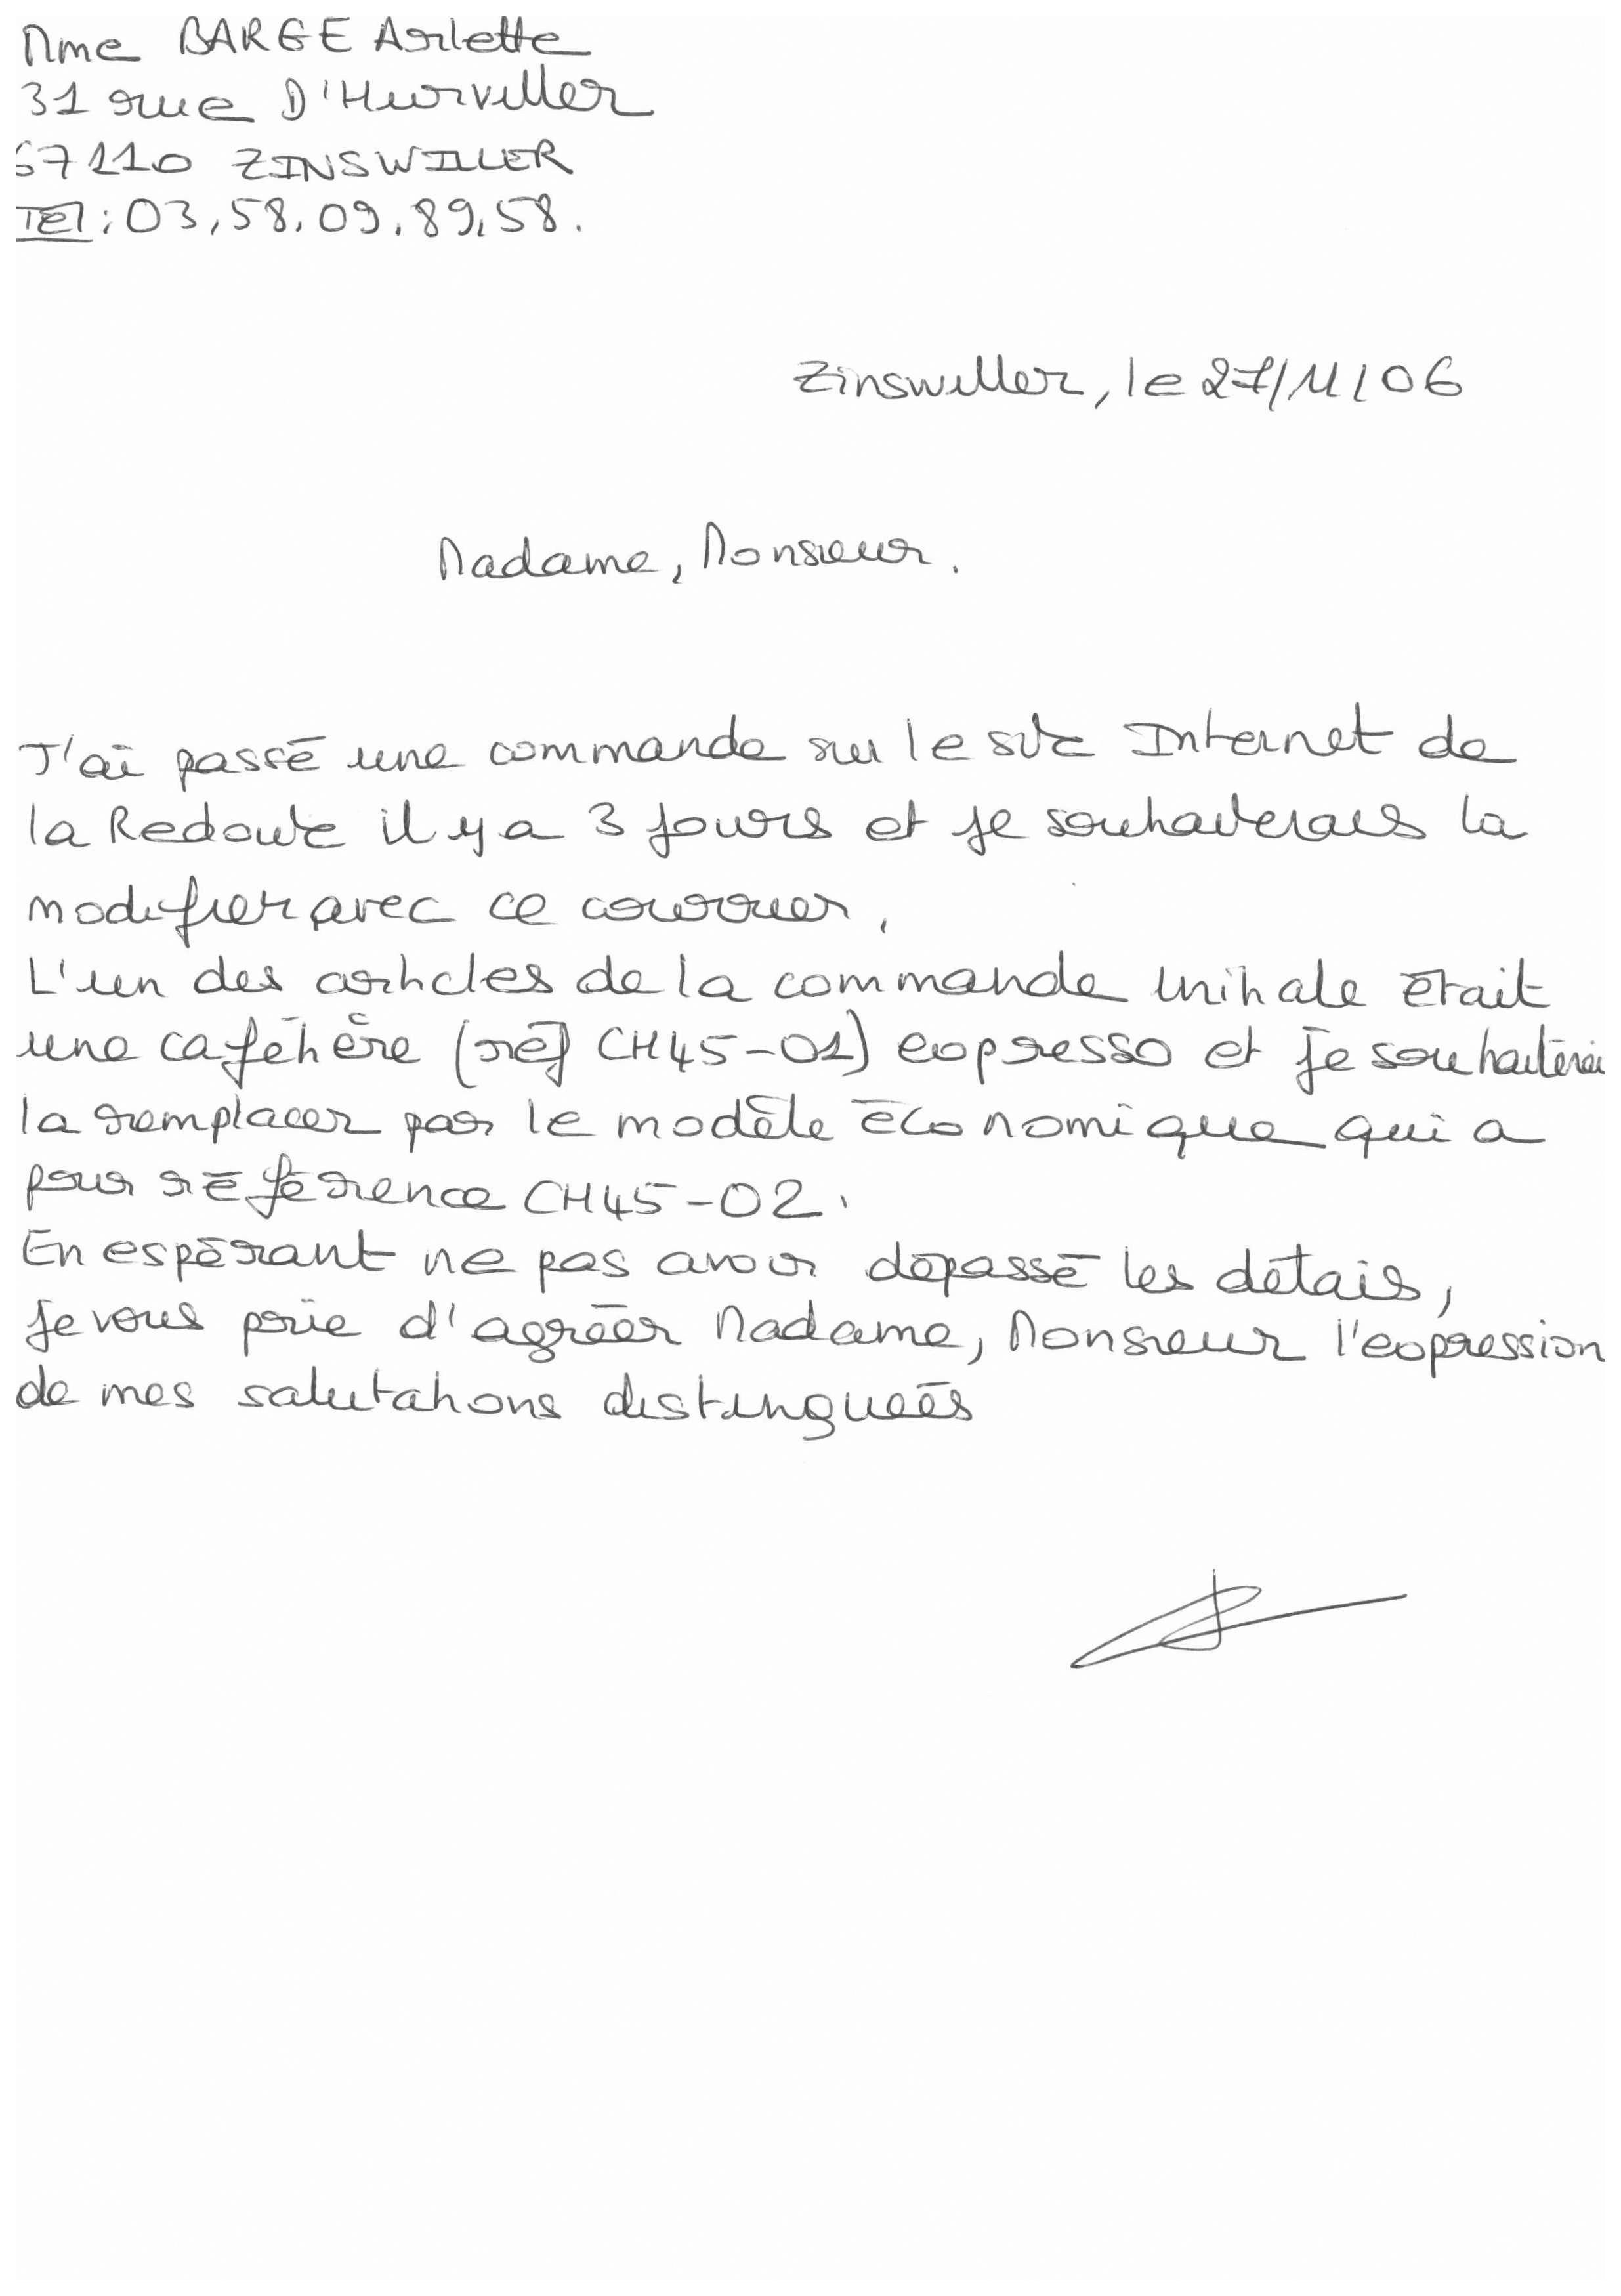 Mme BARGE Arlette
31 rue D'Hurviller
67110 ZINSWILLER
Tél : 03,58.09.89.58.
Zinswiller, le 27/11/06
Madame, Monsieur.
J'ai passé une commande sur le site Internet de
la Redoute il y a 3 jours et je souhaiterais la
modifier avec ce courrier.
L'un des articles de la commande initiale était
une cafétière (réf CH45-01) expresso et je souhaiterai
la remplacer par le modèle économique qui a
pour référence CH45-02.
En espérant ne pas avoir dépassé les détais,
je vous prie d'agréer Madame, Monsieur l'expression
de mes salutations distinguées